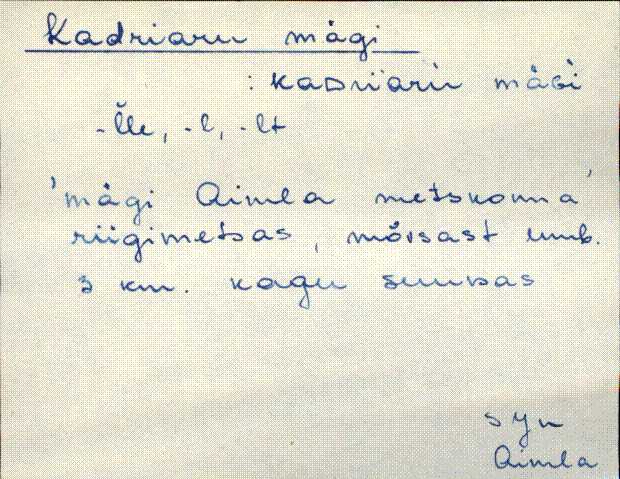 Kadriaru mägi
: kaDriiarù mäGi
-l̆le, -l, -lt
'mägi Aimla metskonna
riigimetsas, mõisast umb.
3 km. kagu suunas'
Syn
Aimla